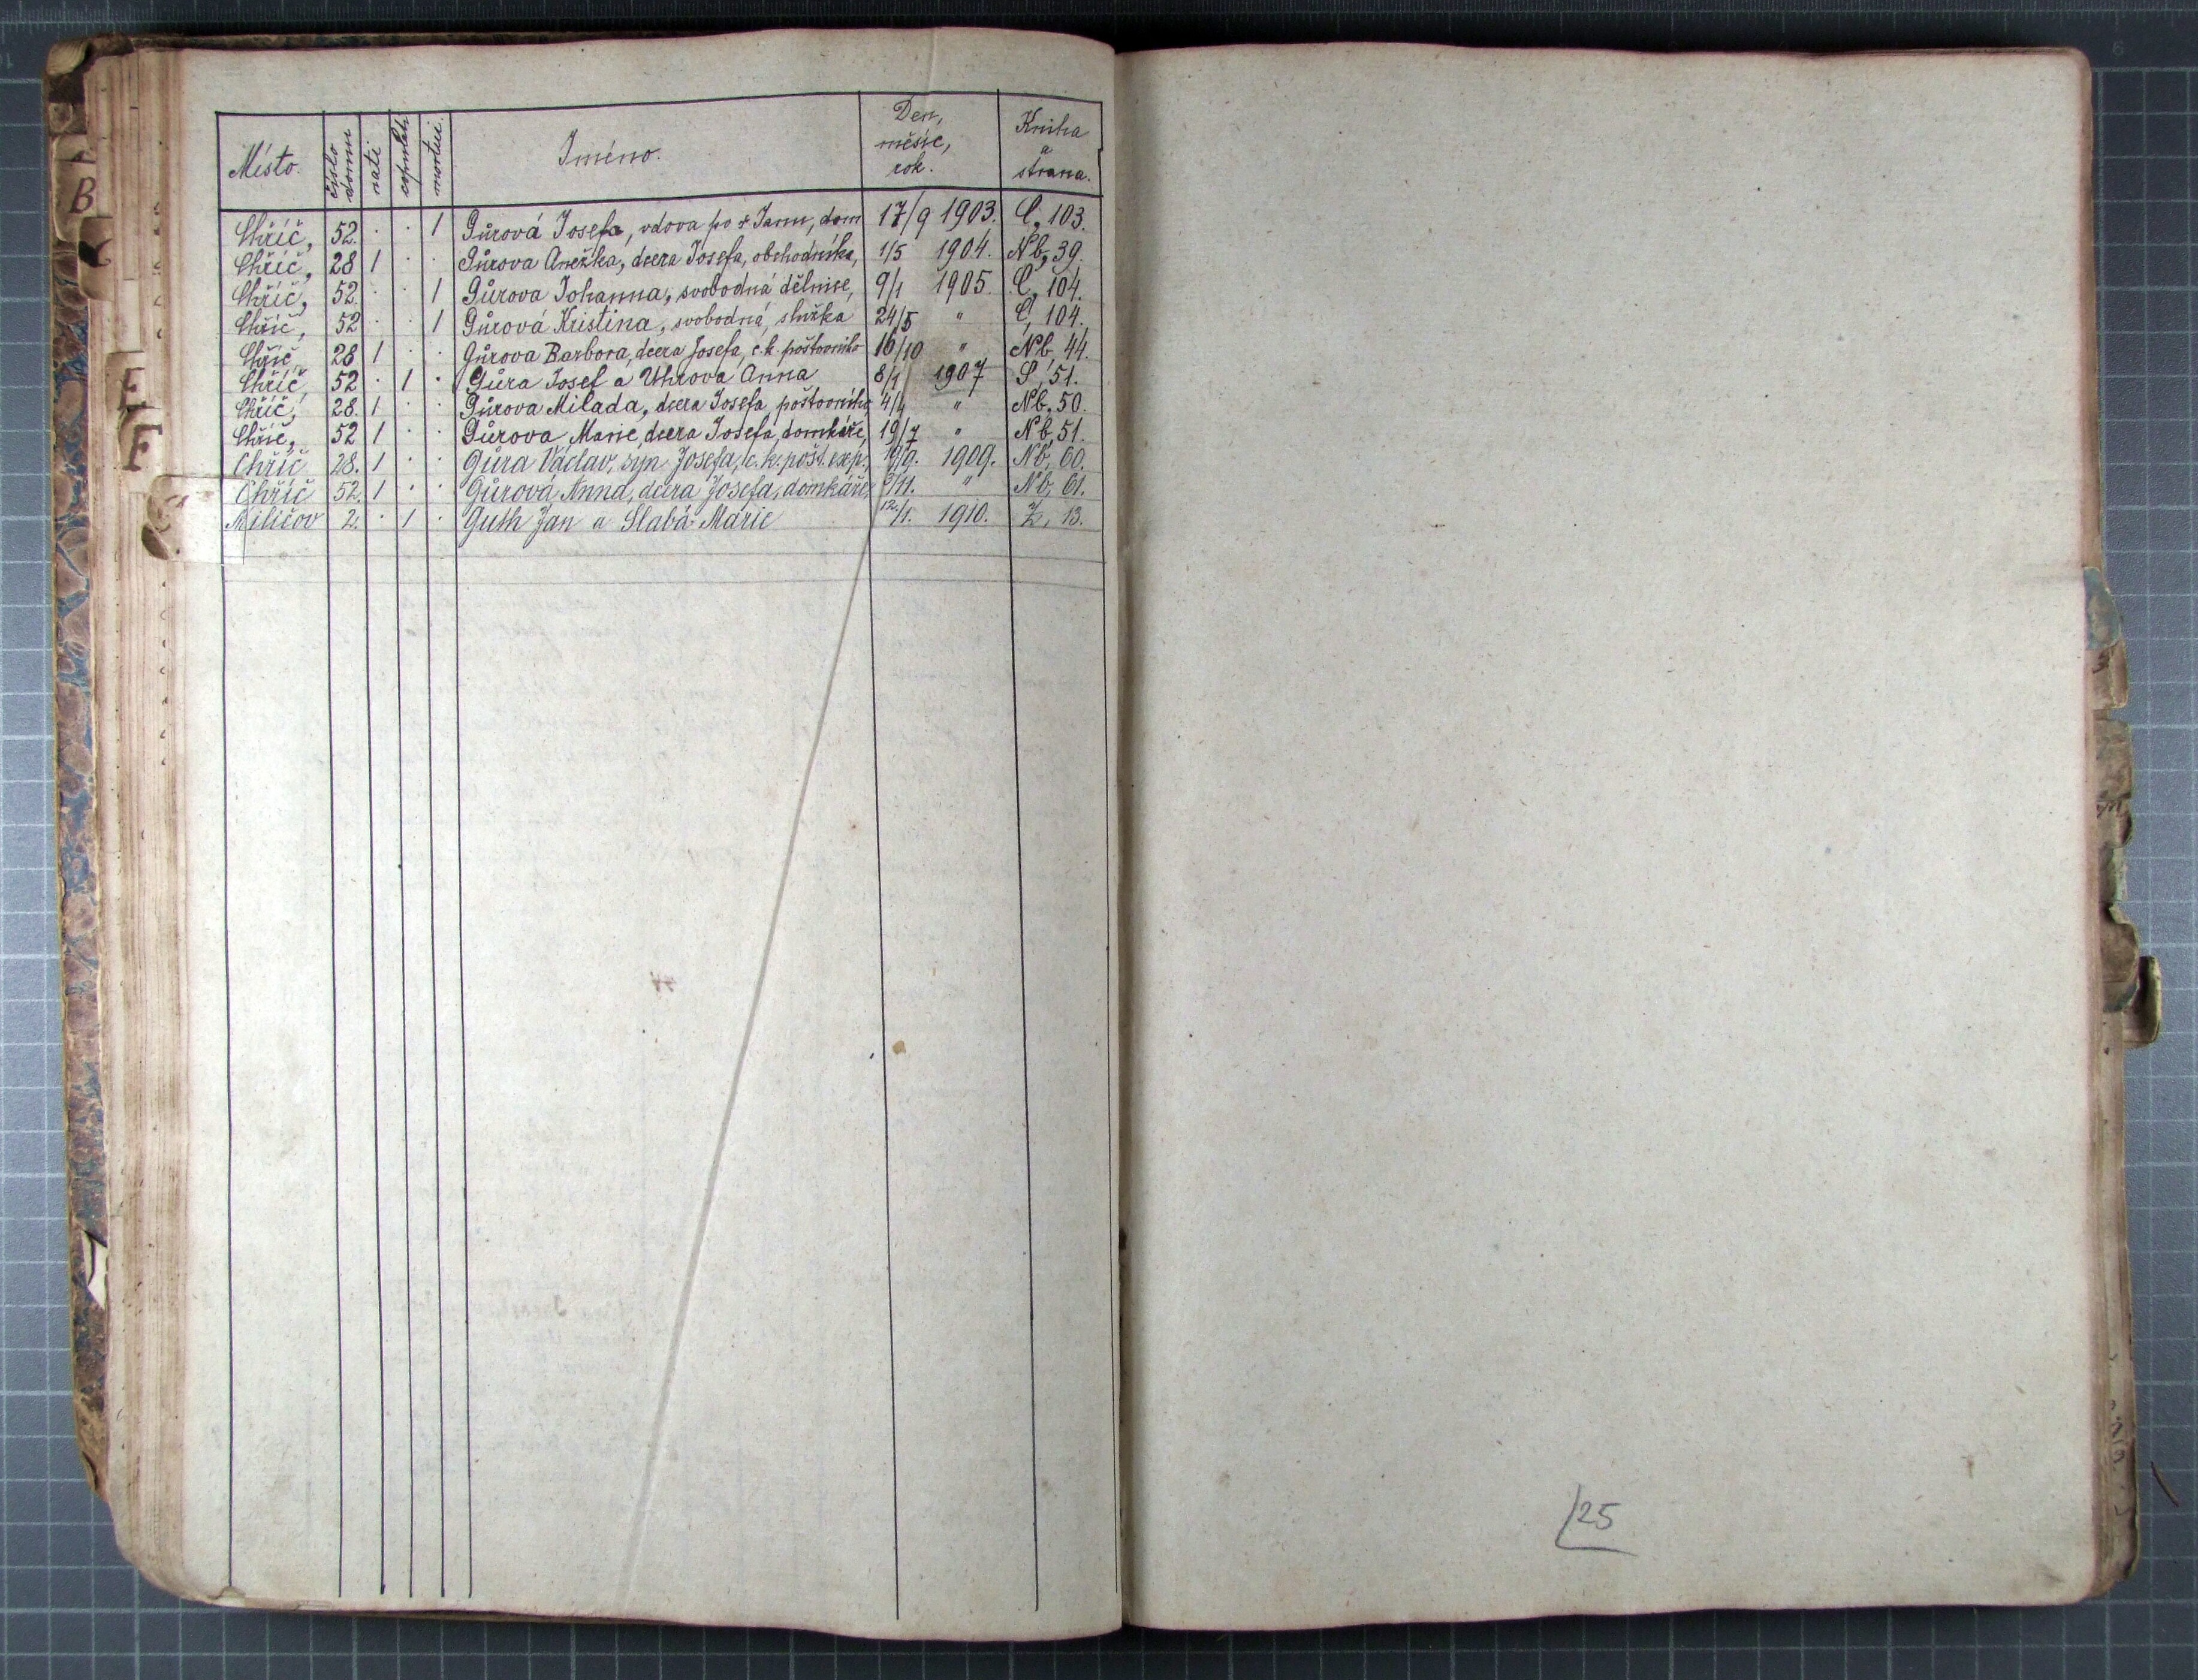 Místo. číslo domu nati copulati mortui. Jméno. Den, měsíc, rok. Kniha a strana.
Chříč, 52. · · 1 Gůrová Josefa, vdova po † Janu, dom 17/9 1903. C, 103.
Chříč, 28 1 · · Gůrova Anežka, dcera Josefa, obchodníka, 1/5 1904. Nb, 39.
Chříč, 52. · · 1 Gůrova Johanna, svobodná dělnice, 9/1 1905. C, 104.
Chříč, 52 · · 1 Gůrová Kristina, svobodná, služka 24/5 " C, 104.
Chříč, 28 1 · · Gůrova Barbora, dcera Josefa, c.k. poštovního 16/10 " Nb, 44.
Chříč, 52 · 1 · Gůra Josef a Uhrova Anna 8/1 1907 S, 51.
Chříč, 28. 1 · · Gůrova Milada, dcera Josefa, poštovního, 4/4 " Nb, 50.
Chříč, 52 1 · · Gůrova Marie, dcera Josefa, domkáře, 19/7 " Nb, 51.
Chříč 28. 1 · · Gůra Václav, syn Josefa, c. k. pošt. exp., 19/9. 1909. Nb, 60.
Chříč 52. 1 · · Gůrová Anna, dcera Josefa, domkáře, /11. " Nb, 61.
Miličov 2. · 1 · Guth Jan a Slabá Marie 12./1. 1910. Z, 13.
B
E
F
25